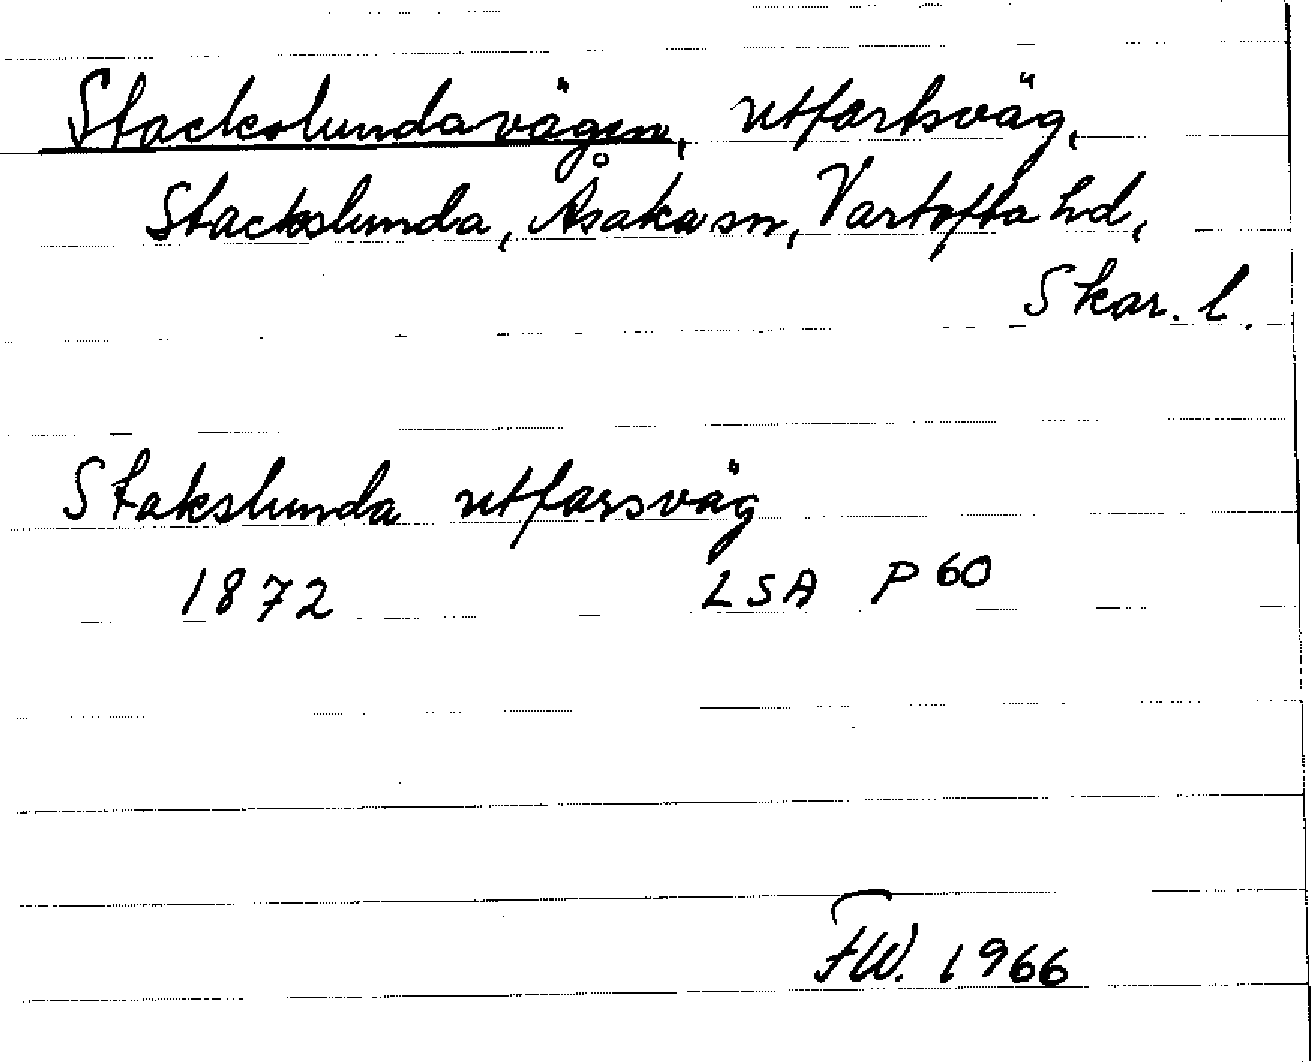 Stackslundavägen, utfartsväg,
Stackslunda, Åsaka sn, Vartofta hd,
Skar. l.
Stakslunda utfarsväg
1872 LSA P 60
FW. 1966